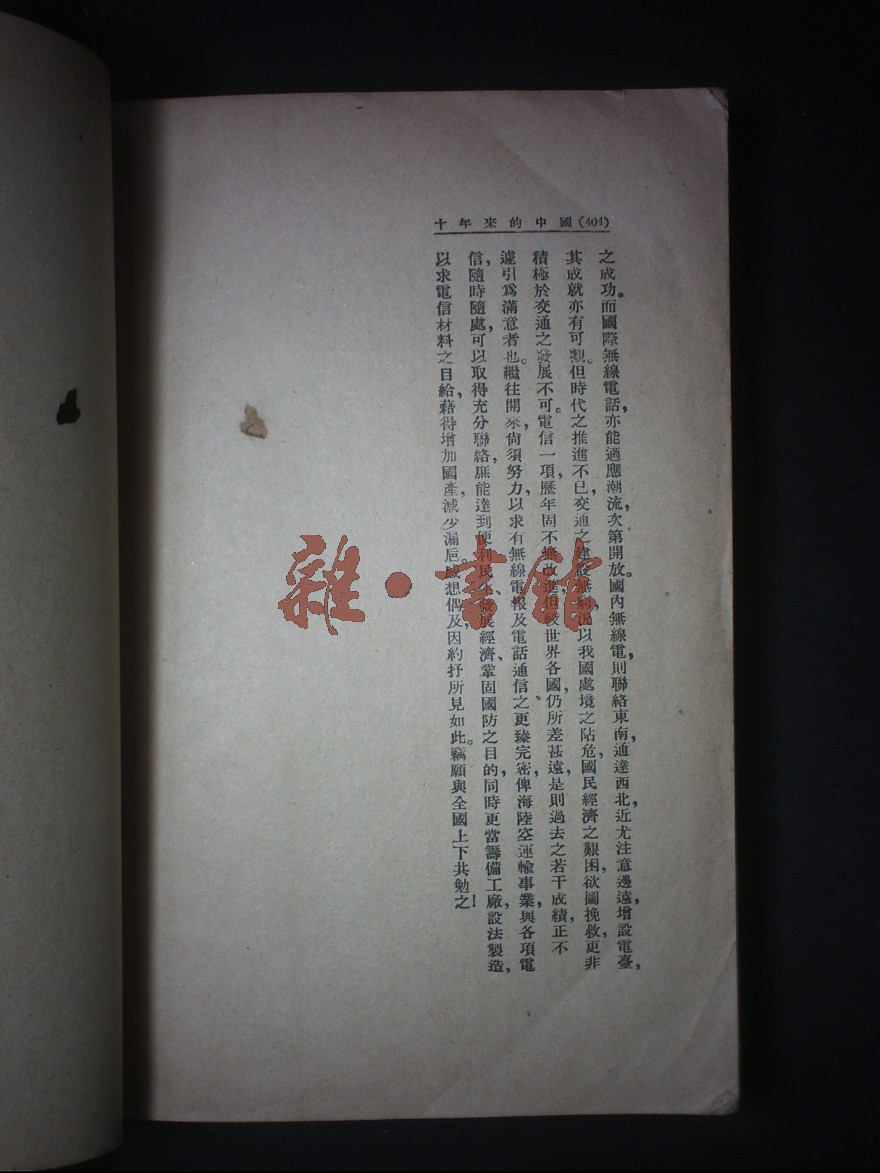 十年來的中國(404)
之成功。而國際無線電話，亦能適應潮流，次第開放。國內無線電，則聯絡東南，通達西北，近尤注意邊遠，增設電臺，
其成就亦有可觀。但時代之推進不已，交通之建設無窮，況以我國處境之阽危，國民經濟之艱困，欲圖挽救，更非
積極於交通之發展不可。電信一項，歷年固不無改進，但較世界各國，仍所差甚遠，是則過去之若干成績，正不
遽引爲滿意者也。繼往開來，尙須努力，以求有無線電報及電話通信之更臻完密，俾海陸空運輸事業，與各項電
信，隨時隨處，可以取得充分聯絡，庶能達到便利民生、發展經濟、鞏固國防之目的，同時更當籌備工廠，設法製造，
以求電信材料之自給，藉得增加國產，減少漏巵。感想偶及，因約抒所見如此。竊願與全國上下共勉之！
雜·書館